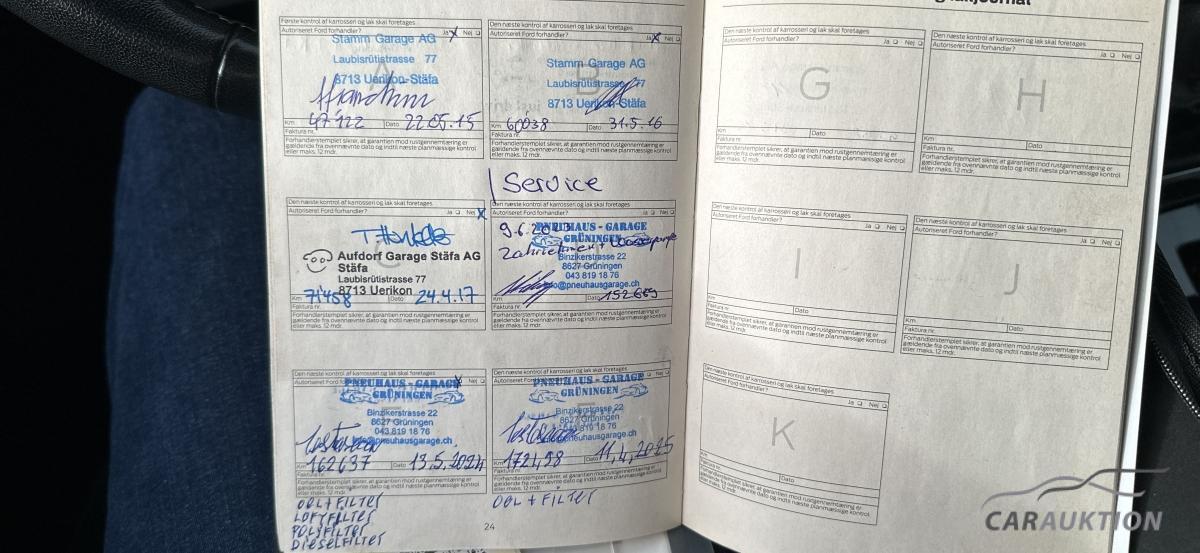 Første kontrol af karrosseri og lak skal foretages
Autoriseret Ford forhandler? Ja Nej
Stamm Garage AG
Laubisrütistrasse 77
8713 Uerikon-Stäfa
Km 47'122 Dato 22.05.15
Faktura nr.
Forhandlerstemplet sikrer, at garantien mod rustgennemtæring er
gældende fra ovennævnte dato og indtil næste planmæssige kontrol
eller maks. 12 mdr.
Den næste kontrol af karrosseri og lak skal foretages
Autoriseret Ford forhandler? Ja Nej
B
Stamm Garage AG
Laubisrütistrasse 77
8713 Uerikon-Stäfa
Km 60038 Dato 31.5.16
Faktura nr.
Forhandlerstemplet sikrer, at garantien mod rustgennemtæring er
gældende fra ovennævnte dato og indtil næste planmæssige kontrol
eller maks. 12 mdr.
Service
Den næste kontrol af karrosseri og lak skal foretages
Autoriseret Ford forhandler? Ja Nej
Aufdorf Garage Stäfa AG
Stäfa
Laubisrütistrasse 77
8713 Uerikon
Km 71'458 Dato 24.4.17
Faktura nr.
Forhandlerstemplet sikrer, at garantien mod rustgennemtæring er
gældende fra ovennævnte dato og indtil næste planmæssige kontrol
eller maks. 12 mdr.
Den næste kontrol af karrosseri og lak skal foretages
Autoriseret Ford forhandler? Ja Nej
PNEUHAUS - GARAGE
GRÜNINGEN
Zahnriemen +
Binzikerstrasse 22
8627 Grüningen
043 819 18 76
info@pneuhausgarage.ch
Km Dato 152'669
Faktura nr.
Forhandlerstemplet sikrer, at garantien mod rustgennemtæring er
gældende fra ovennævnte dato og indtil næste planmæssige kontrol
eller maks. 12 mdr.
Den næste kontrol af karrosseri og lak skal foretages
Autoriseret Ford
PNEUHAUS - GARAGE
GRÜNINGEN
Binzikerstrasse 22
8627 Grüningen
043 819 18 76
info@pneuhausgarage.ch
Km 162637 Dato 13.5.2024
Faktura nr.
Forhandlerstemplet sikrer, at garantien mod rustgennemtæring er
gældende fra ovennævnte dato og indtil næste planmæssige kontrol
eller maks. 12 mdr.
OEL+FILTER
LUFTFILTER
POLLFILTER
DIESELFILTER
Den næste kontrol af karrosseri og lak skal foretages
Autoriseret Nej
PNEUHAUS - GARAGE
GRÜNINGEN
Binzikerstrasse 22
8627 Grüningen
043 819 18 76
info@pneuhausgarage.ch
Km 172498 Dato 11.4.2025
Faktura nr.
Forhandlerstemplet sikrer, at garantien mod rustgennemtæring er
gældende fra ovennævnte dato og indtil næste planmæssige kontrol
eller maks. 12 mdr.
OEL + FILTER
24
Den næste kontrol af karrosseri og lak skal foretages
Autoriseret Ford forhandler? Ja Nej
G
Km Dato
Faktura nr.
Forhandlerstemplet sikrer, at garantien mod rustgennemtæring er
gældende fra ovennævnte dato og indtil næste planmæssige kontrol
eller maks. 12 mdr.
Den næste kontrol af karrosseri og lak skal foretages
Autoriseret Ford forhandler? Ja Nej
H
Km Dato
Faktura nr.
Forhandlerstemplet sikrer, at garantien mod rustgennemtæring er
gældende fra ovennævnte dato og indtil næste planmæssige kontrol
eller maks. 12 mdr.
Den næste kontrol af karrosseri og lak skal foretages
Autoriseret Ford forhandler? Ja Nej
I
Km Dato
Faktura nr.
Forhandlerstemplet sikrer, at garantien mod rustgennemtæring er
gældende fra ovennævnte dato og indtil næste planmæssige kontrol
eller maks. 12 mdr.
Den næste kontrol af karrosseri og lak skal foretages
Autoriseret Ford forhandler? Ja Nej
J
Km Dato
Faktura nr.
Forhandlerstemplet sikrer, at garantien mod rustgennemtæring er
gældende fra ovennævnte dato og indtil næste planmæssige kontrol
eller maks. 12 mdr.
Den næste kontrol af karrosseri og lak skal foretages
Autoriseret Ford forhandler? Ja Nej
K
Km Dato
Faktura nr.
Forhandlerstemplet sikrer, at garantien mod rustgennemtæring er
gældende fra ovennævnte dato og indtil næste planmæssige kontrol
eller maks. 12 mdr.
CARAUKTION